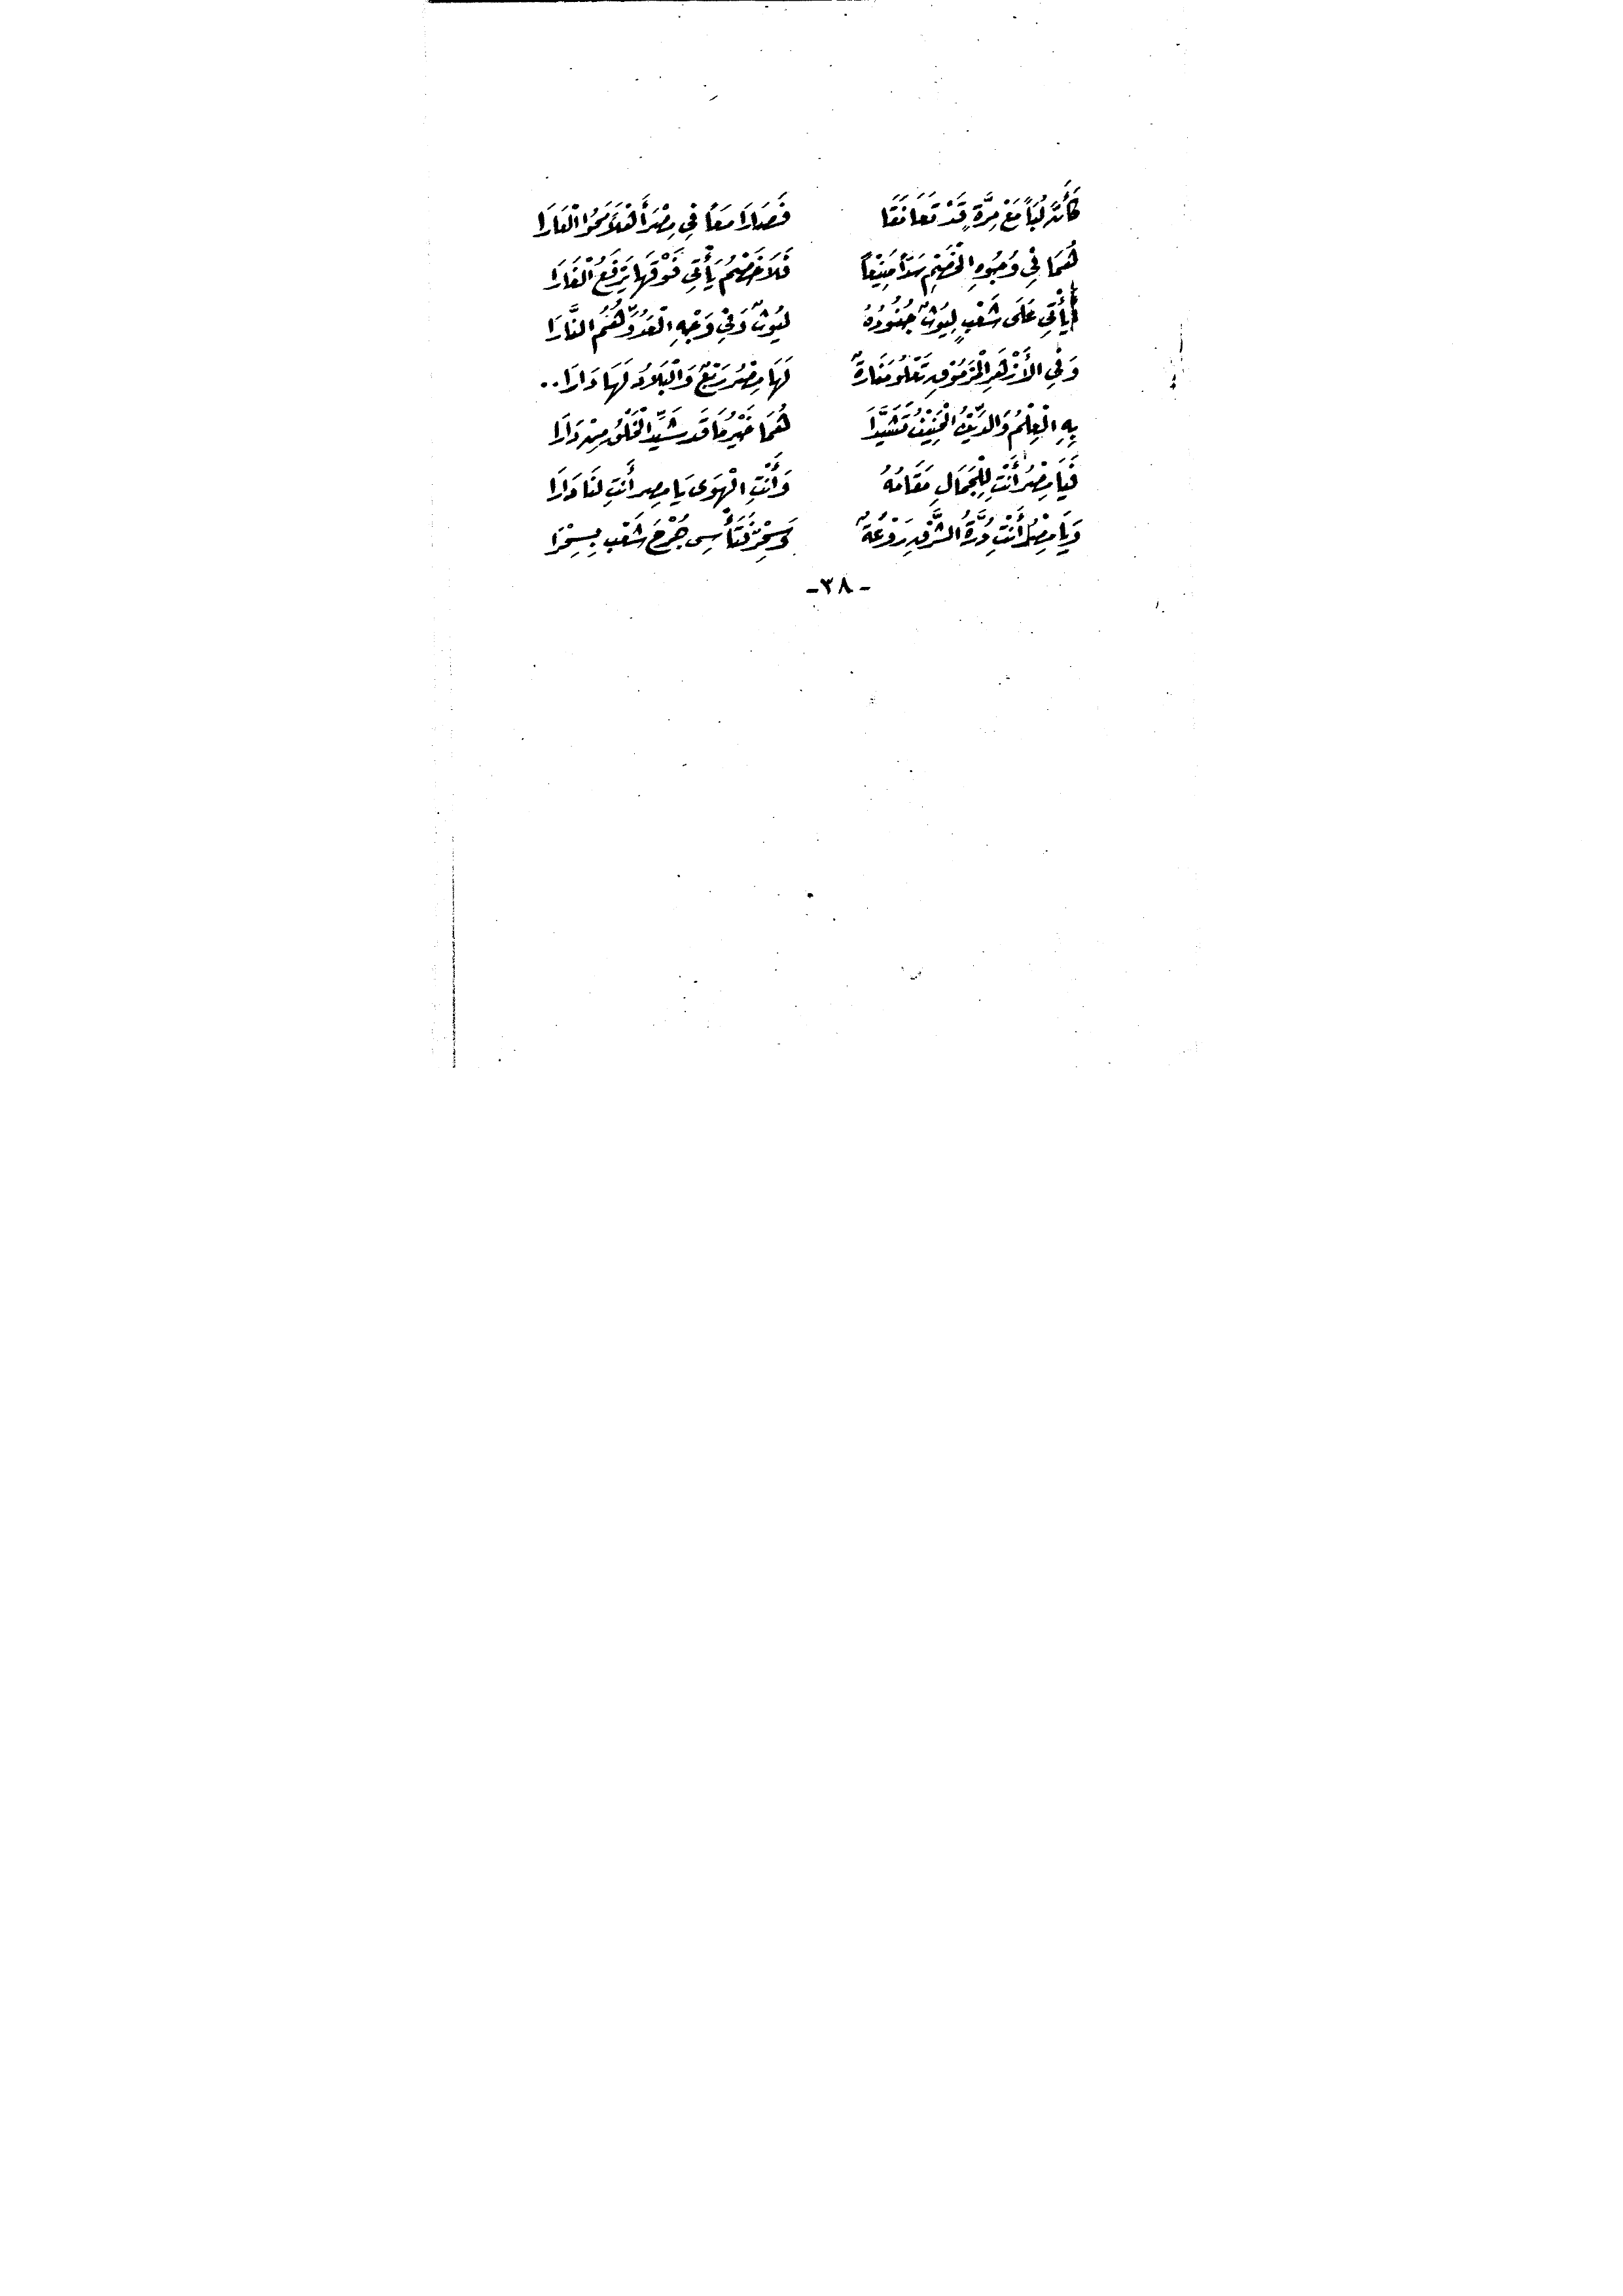 كَأَنَّ لُبَاً مَعْ مِرَّةٍ قَدْ تَعَانَقَا فَصَارَا مَعاً فِي مِصْرَ أَهْلاً مَحَوُا الْعَارَا
هُمَا فِي وُجُوهِ الْخَصْمِ سَدّاً مَنِيْعاً فَلاَ خَصْمُ يَأْتِي فَوْقَهَا يَرْفَعُ الْغَارَا
أَيَأْتِي عَلَى شَعْبٍ لِيُوثٌ جُنُودُهُ لُيُوثٌ وَفِي وَجْهِ الْعَدُوِّ هُمُ النَّارَا
وَفِي الأَزْهَرِ الْمَرْمُوْقِ تَعْلُو مَنَارةٌ لَهَا مِصْرُ رَبْعٌ وَالْبِلاَدُ لَهَا دَارَا..
بِهِ الْعِلْمُ وَالدِّيْنُ الْحَنِيْفُ تَشَيَّدَا هُمَا خَيْرُ مَا قَد شَيَّدَ الْخَلْقُ مِنْ دَارَا
فَيَا مِصْرُ أَنْتِ لِلْجَمَالِ مَقَامُهُ وَأَنْتِ الْهَوَى يَا مِصر أَنتِ لنَا دَارَا
وَيَا مِصْرُ أَنْتِ دُرَّةُ الشَّرْقِ رَوْعَةٌ وَسِحْرٌ تَأْسِى جُرْحَ شَعْبٍ بِسِحْرَا
-٣٨-